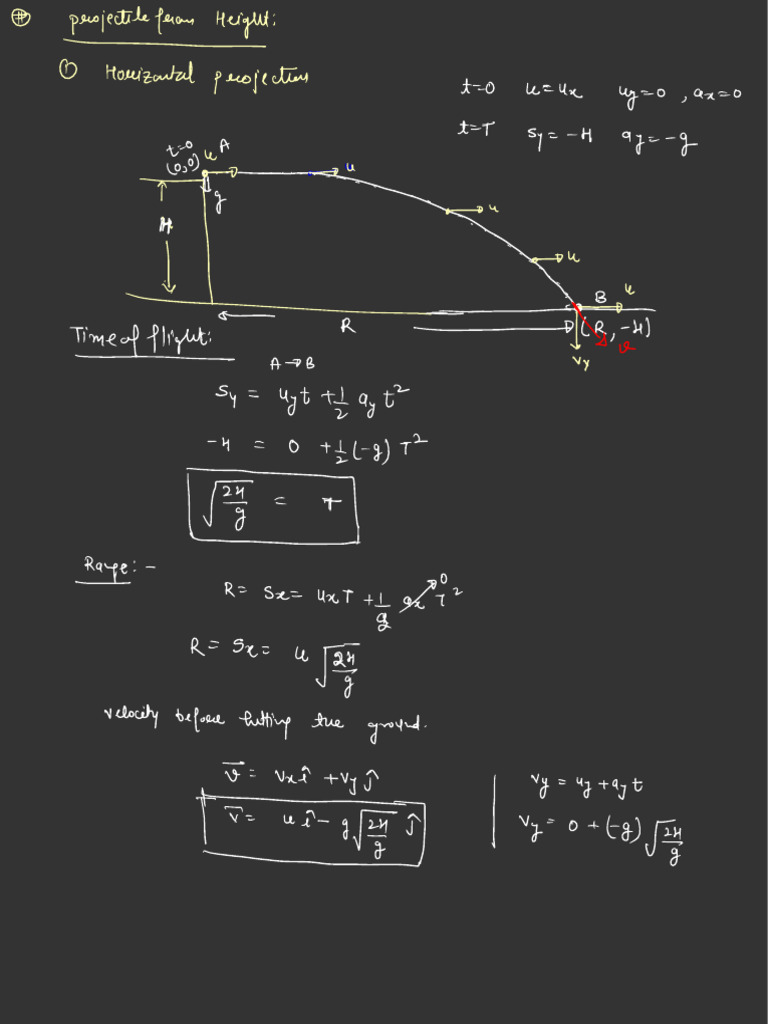 ⊕ projectile from Height:
① Horizontal projection
t=0 u=ux uy=0 , ax=0
t=T Sy= -H ay= -g
t=0
(0,0) u A
u
g
H
u
u
B u
R
(R, -H)
v
vy
Time of flight:
A → B
Sy = uyt + 1/2 ay t²
-H = 0 + 1/2 (-g) T²
√(2H/g) = T
Range: -
R = Sx = uxT + 1/g ax T² 0
R = Sx = u √(2H/g)
velocity before hitting the ground.
v⃗ = vx î + vy ĵ
v⃗ = u î - g √(2H/g) ĵ
vy = uy + ay t
vy = 0 + (-g) √(2H/g)